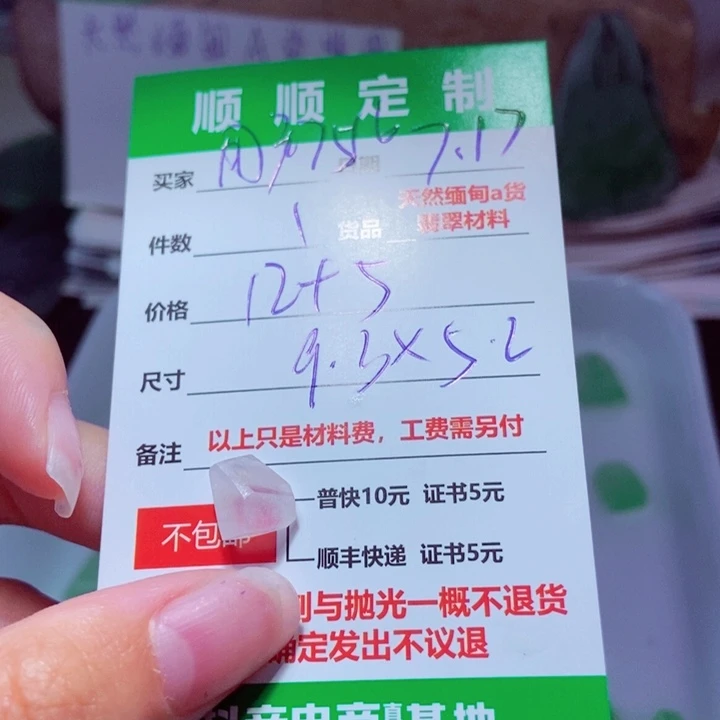 顺顺定制
买家 用户7567.17
件数 1 货品 天然缅甸a货
翡翠材料
价格 12+5
尺寸 9.3×5.2
备注 以上只是材料费，工费需另付
普快10元 证书5元
不包邮
顺丰快递 证书5元
与抛光一概不退货
确定发出不议退
抖音电商直播基地